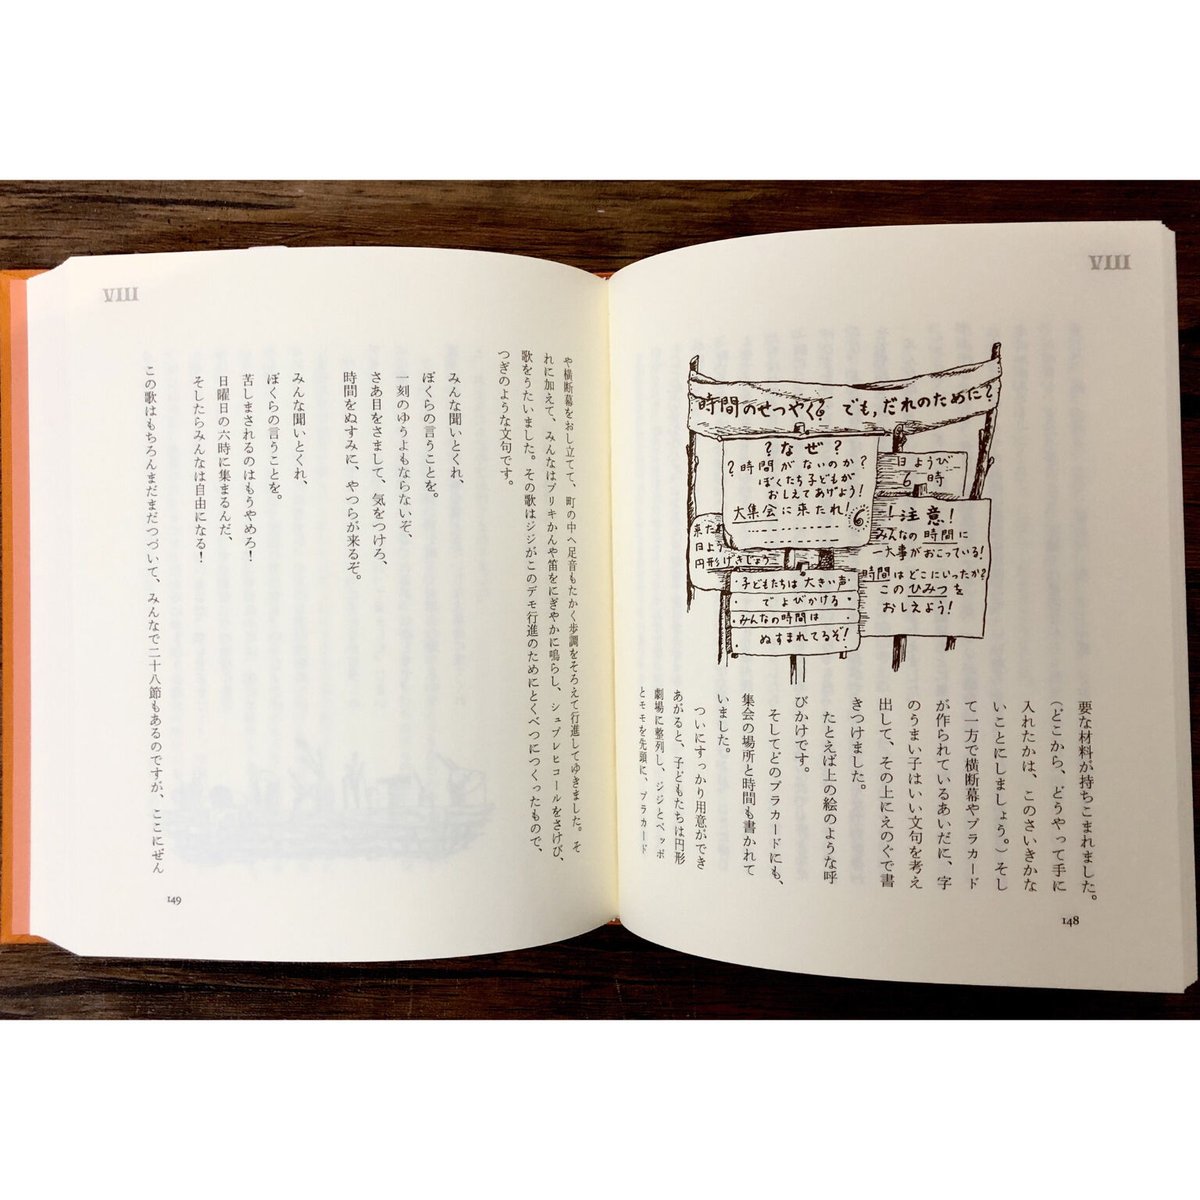 VIII
時間のせつやく? でも,だれのために?
?なぜ?
?時間がないのか?
ぼくたち子どもが
おしえてあげよう!
大集会に来たれ!
6
日ようび
6時
来た
日よう
円形げきじょう
!注意!
みんなの時間に
一大事がおこっている!
時間はどこにいったか?
このひみつを
おしえよう!
・子どもたちは大きい声
・でよびかける・
・みんなの時間は・
ぬすまれてるぞ!
要な材料が持ちこまれました。
(どこから、どうやって手に
入れたかは、このさいきかな
いことにしましょう。)そし
て一方で横断幕やプラカード
が作られているあいだに、字
のうまい子はいい文句を考え
出して、その上にえのぐで書
きつけました。
たとえば上の絵のような呼
びかけです。
そしてどのプラカードにも、
集会の場所と時間も書かれて
いました。
ついにすっかり用意ができ
あがると、子どもたちは円形
劇場に整列し、ジジとベッポ
とモモを先頭に、プラカード
148
VIII
や横断幕をおし立てて、町の中へ足音もたかく歩調をそろえて行進してゆきました。そ
れに加えて、みんなはブリキかんや笛をにぎやかに鳴らし、シュプレヒコールをさけび、
歌をうたいました。その歌はジジがこのデモ行進のためにとくべつにつくったもので、
つぎのような文句です。
みんな聞いとくれ、
ぼくらの言うことを。
一刻のゆうよもならないぞ、
さあ目をさまして、気をつけろ、
時間をぬすみに、やつらが来るぞ。
みんな聞いとくれ、
ぼくらの言うことを。
苦しまされるのはもうやめろ!
日曜日の六時に集まるんだ、
そしたらみんなは自由になる!
この歌はもちろんまだまだつづいて、みんなで二十八節もあるのですが、ここにぜん
149